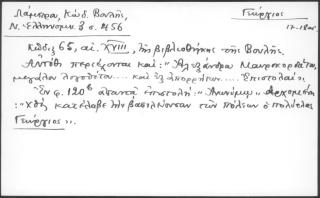 Λάμπρου, Κώδ. Βουλῆς,
Γεώργιος
Ν. Ἑλληνομν. 3 σ. 456
17-18 αι.
Κῶδιξ 65, αἰ. XVIII, τῆς βιβλιοθήκης τῆς Βουλῆς.
Αὐτόθι περιέχονται καὶ: "Ἀλεξάνδρου Μαυροκορδάτου,
μεγάλου λογοθέτου.... καὶ ἐξ ἀπορρήτων.... Ἐπιστολαί".
Ἐν φ. 120β ἀπαντᾷ ἐπιστολή: "Ἀνωνύμου" ἀρχομένη:
"Χθὲς κατέλαβε τὴν βασιλεύουσαν τῶν πόλεων ὁ πολύτλας
Γεώργιος".